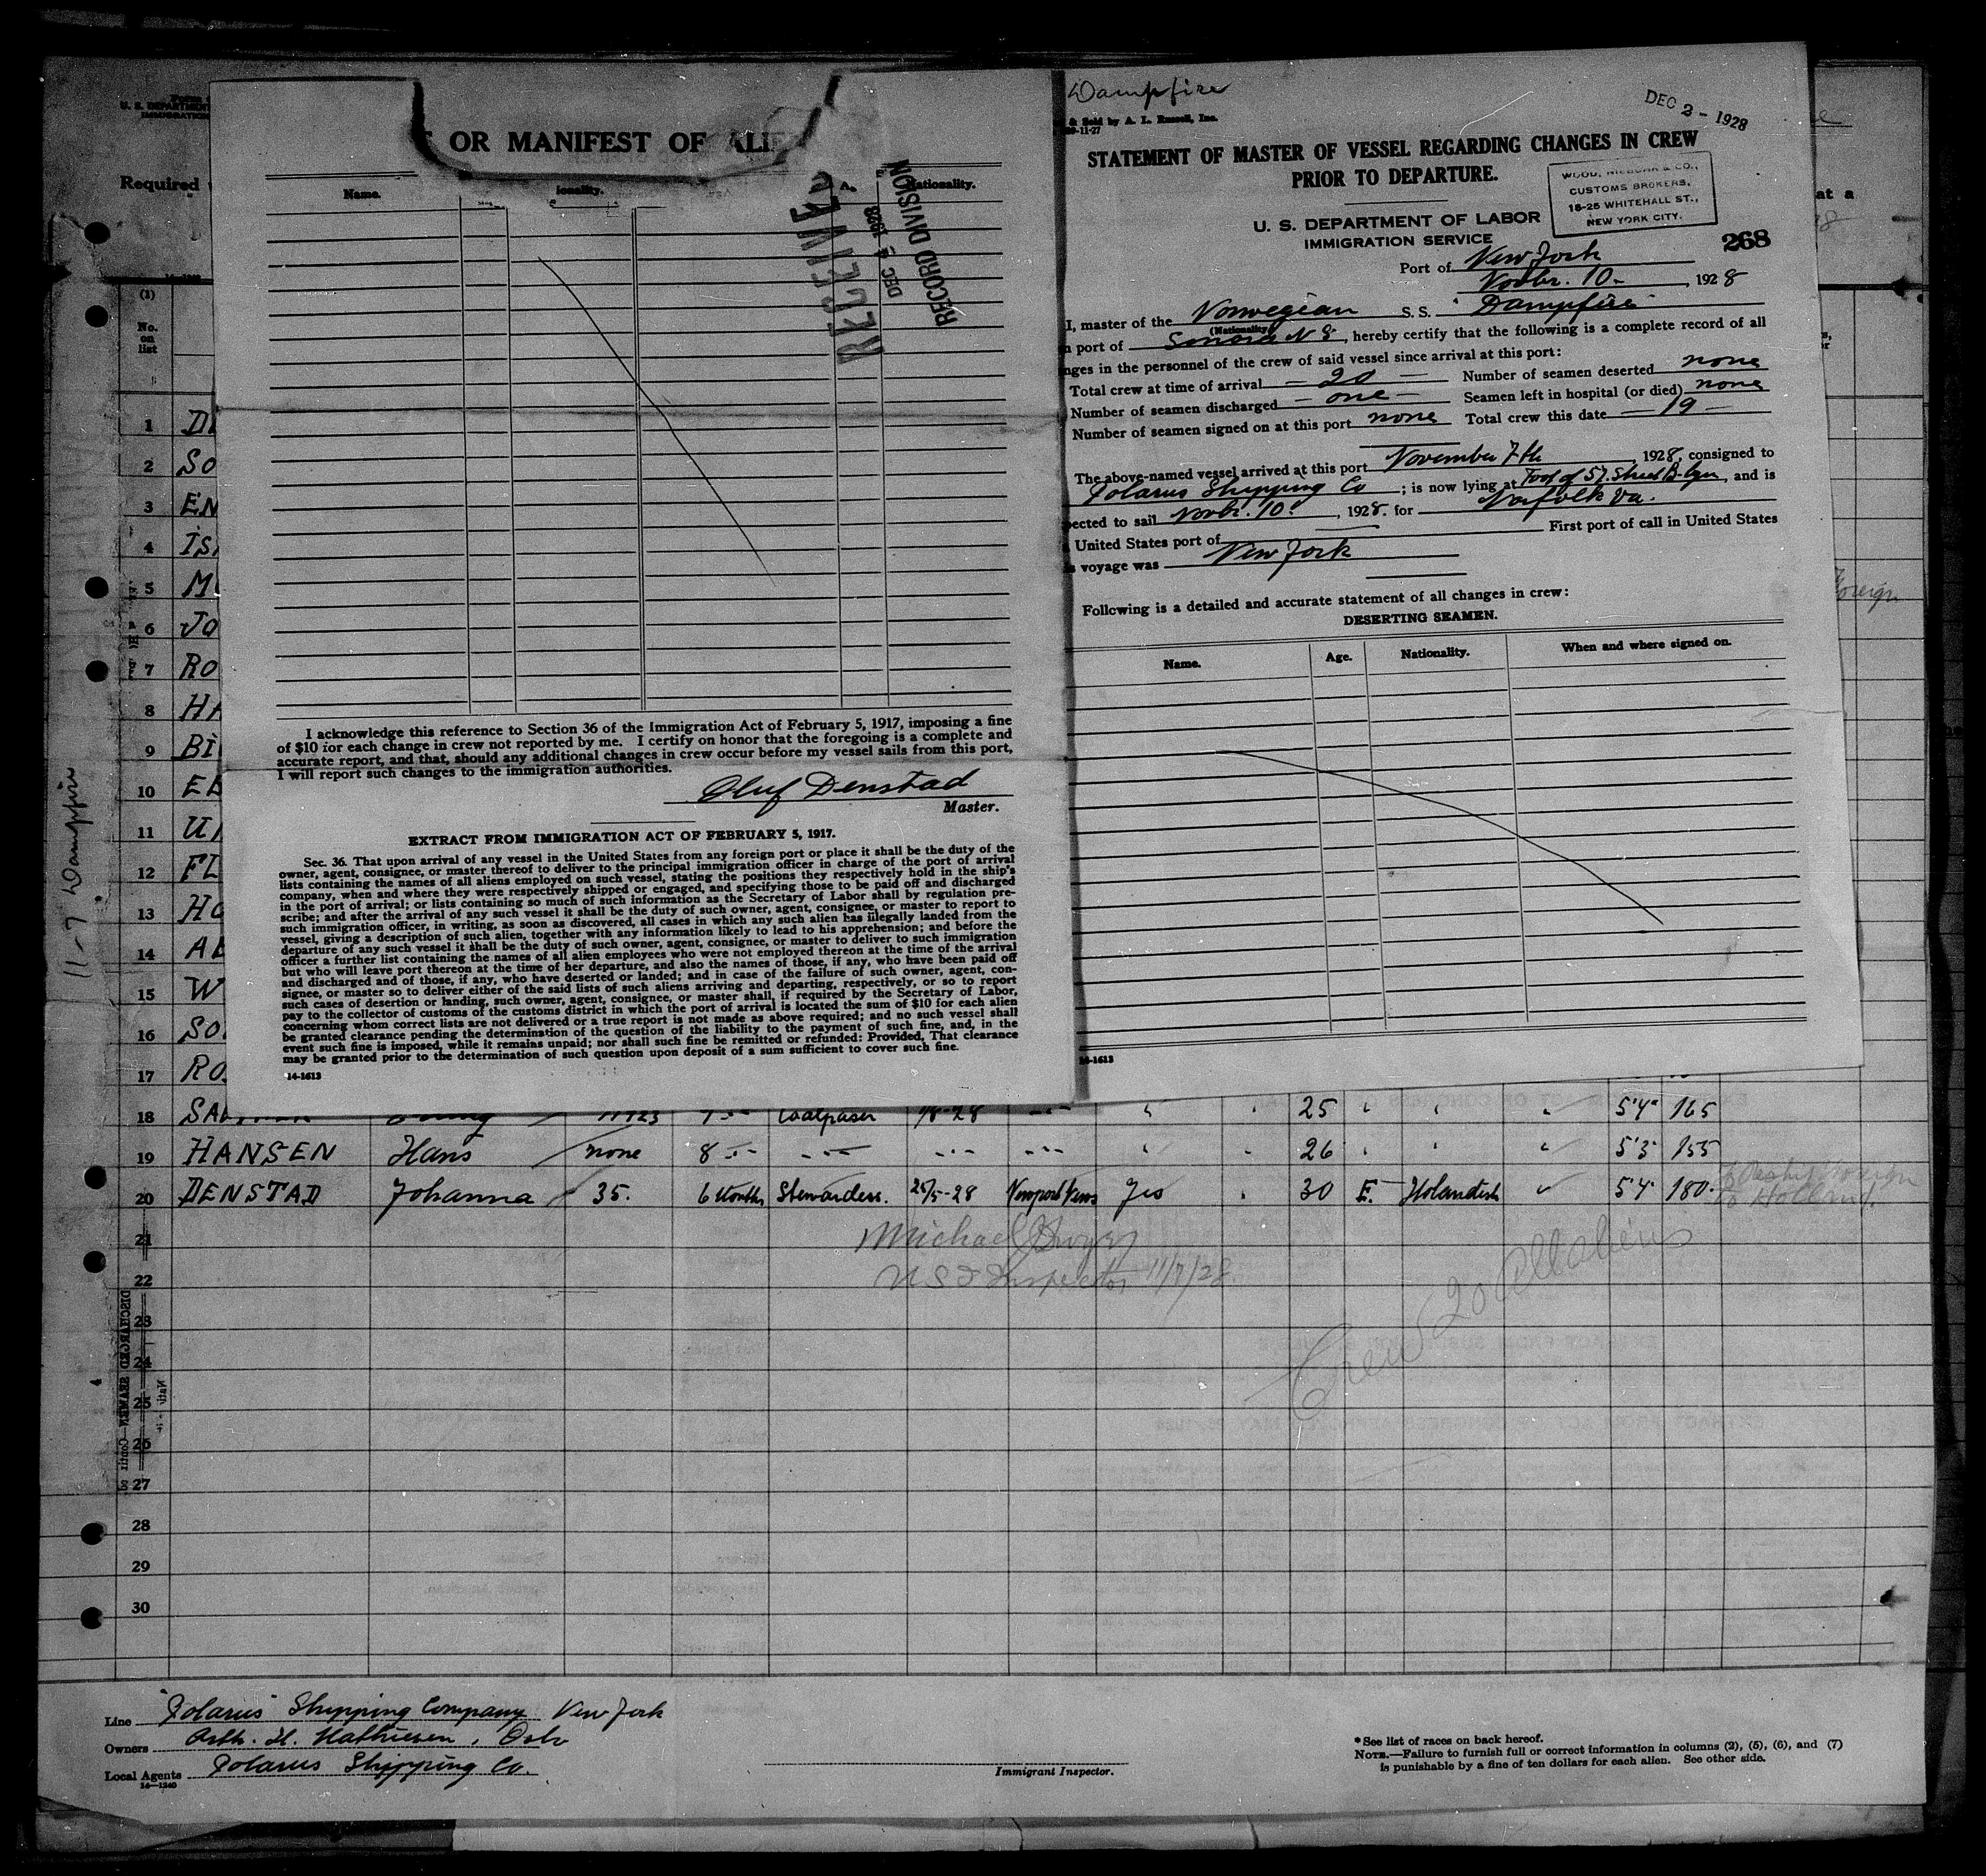 OR MANIFEST OF ALIE
Name.
ionality.
Nationality.
RECEIVED
DEC 4 1928
RECORD DIVISION
I acknowledge this reference to Section 36 of the Immigration Act of February 5, 1917, imposing a fine
of $10 for each change in crew not reported by me. I certify on honor that the foregoing is a complete and
accurate report, and that, should any additional changes in crew occur before my vessel sails from this port,
I will report such changes to the immigration authorities.
Oluf Denstad
Master.
EXTRACT FROM IMMIGRATION ACT OF FEBRUARY 5, 1917.
Sec. 36. That upon arrival of any vessel in the United States from any foreign port or place it shall be the duty of the
owner, agent, consignee, or master thereof to deliver to the principal immigration officer in charge of the port of arrival
lists containing the names of all aliens employed on such vessel, stating the positions they respectively hold in the ship's
company, when and where they were respectively shipped or engaged, and specifying those to be paid off and discharged
in the port of arrival; or lists containing so much of such information as the Secretary of Labor shall by regulation pre-
scribe; and after the arrival of any such vessel it shall be the duty of such owner, agent, consignee, or master to report to
such immigration officer, in writing, as soon as discovered, all cases in which any such alien has illegally landed from the
vessel, giving a description of such alien, together with any information likely to lead to his apprehension; and before the
departure of any such vessel it shall be the duty of such owner, agent, consignee, or master to deliver to such immigration
officer a further list containing the names of all alien employees who were not employed thereon at the time of the arrival
but who will leave port thereon at the time of her departure, and also the names of those, if any, who have been paid off
and discharged and of those, if any, who have deserted or landed; and in case of the failure of such owner, agent, con-
signee, or master so to deliver either of the said lists of such aliens arriving and departing, respectively, or so to report
such cases of desertion or landing, such owner, agent, consignee, or master shall, if required by the Secretary of Labor,
pay to the collector of customs of the customs district in which the port of arrival is located the sum of $10 for each alien
concerning whom correct lists are not delivered or a true report is not made as above required; and no such vessel shall
be granted clearance pending the determination of the question of the liability to the payment of such fine, and, in the
event such fine is imposed, while it remains unpaid; nor shall such fine be remitted or refunded: Provided, That clearance
may be granted prior to the determination of such question upon deposit of a sum sufficient to cover such fine.
14-1613
Dampfire
& Sold by A. L. Russell, Inc.
DEC 3 - 1928
STATEMENT OF MASTER OF VESSEL REGARDING CHANGES IN CREW
PRIOR TO DEPARTURE.
CUSTOMS BROKERS,
18-25 WHITEHALL ST.,
NEW YORK CITY.
U. S. DEPARTMENT OF LABOR
IMMIGRATION SERVICE
268
Port of New York
Novbr. 10-, 1928
I, master of the Norwegian S. S. "Dampfire"
(Nationality)
port of Sonora N S, hereby certify that the following is a complete record of all
nges in the personnel of the crew of said vessel since arrival at this port:
Total crew at time of arrival - 20 - Number of seamen deserted none
Number of seamen discharged - one - Seamen left in hospital (or died) none
Number of seamen signed on at this port none Total crew this date - 19 -
The above-named vessel arrived at this port November 7th, 1928, consigned to
Polarus Shipping Co; is now lying at Foot of 57. Street B-lyn, and is
pected to sail Novbr. 10., 1928. for Norfolk Va.
First port of call in United States
United States port of
voyage was New York
Following is a detailed and accurate statement of all changes in crew:
DESERTING SEAMEN.
Name. Age. Nationality. When and where signed on.
14-1613
Required
at a
(1)
No.
on
list
1 D
2 SO
3 EN
4 IS
5 M
Foreign
6 JO
7 RO
8 HA
9 BI
10 ED
11 U
12 FL
13 HO
14 AL
15 W
16 SO
17 RO
18 SA Coalpaser 25 5'4" 165
19 HANSEN Hans none 8 26 5'3 155
20 DENSTAD Johanna 35. 6 Months Stewardess. 25/5-28 Newport News Yes 30 F. Holandish 5'4" 180.
to Holland.
21
22
23
24
25
26
27
28
29
30
Michael Dwyer
U S I Inspector 11/7/28.
Crew 20 all aliens
11-7 Dampfire
DISCHARGED SEAMEN—Contin
Line "Polarus" Shipping Company New York
Owners Arth. H. Mathiesen, Oslo
Local Agents Polarus Shipping Co.
14-1240
Immigrant Inspector.
* See list of races on back hereof.
NOTE.—Failure to furnish full or correct information in columns (2), (5), (6), and (7)
is punishable by a fine of ten dollars for each alien. See other side.